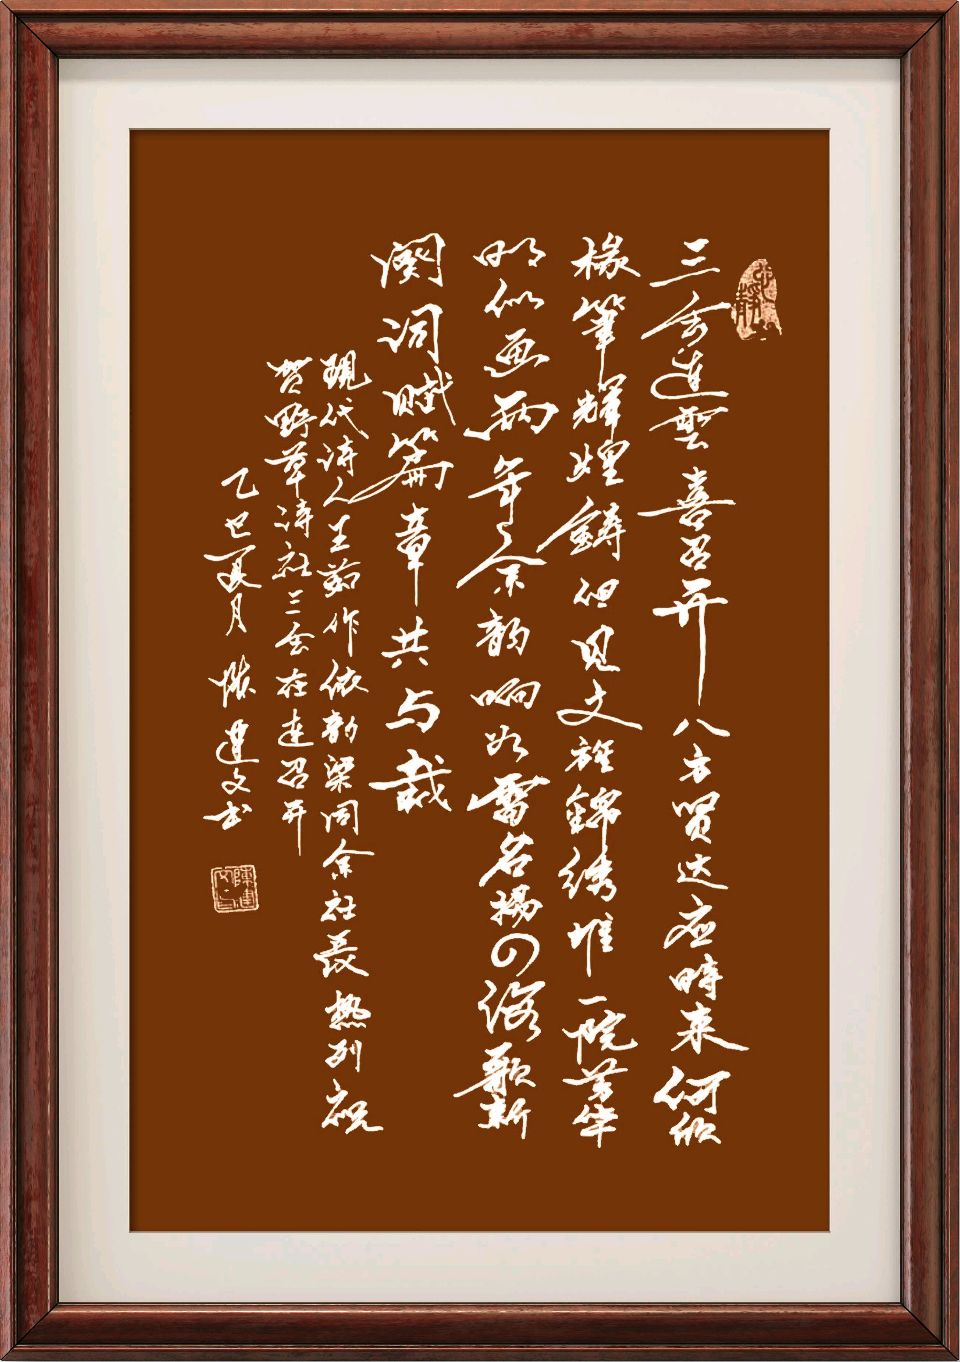 三会连雲喜召开八方贤达应時来何须
椽筆輝煌鋳但见文旌錦绣堆一院芳华
明似画两年余韵响如雷名揚四海歌新
阕词赋篇章共与裁
現代诗人王茹作依韵梁同余社長热烈祝
贺野草诗社三会在连召开
乙巳夏月陈建文书